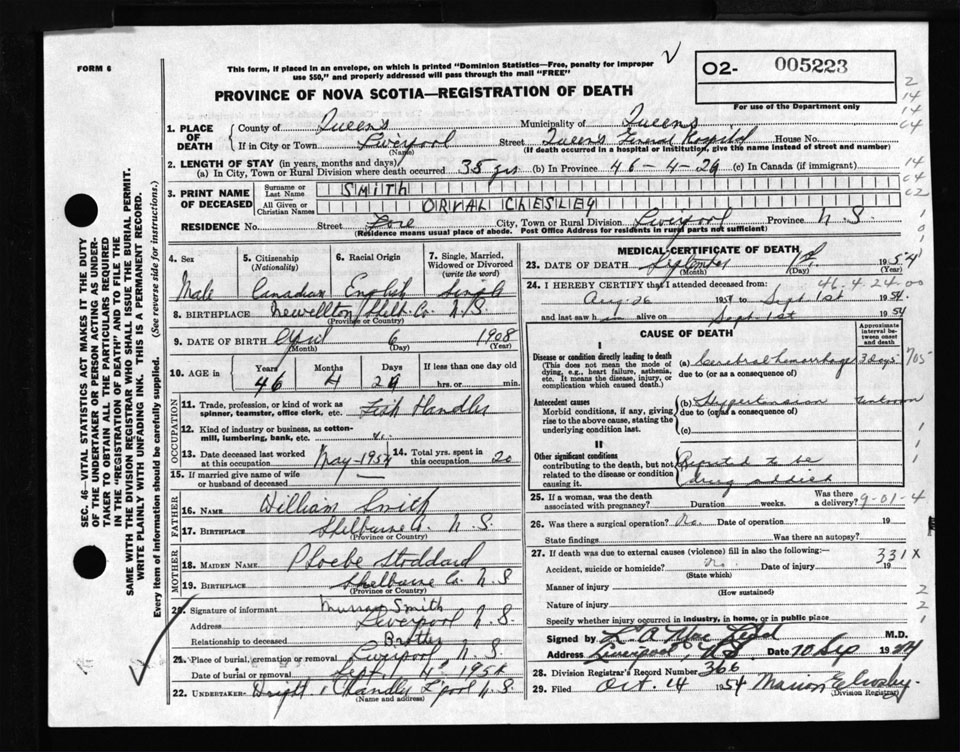 FORM 6
This form, if placed in an envelope, on which is printed "Dominion Statistics—Free, penalty for improper
use $50," and properly addressed will pass through the mail "FREE"
O2- 005223
For use of the Department only
PROVINCE OF NOVA SCOTIA—REGISTRATION OF DEATH
1. PLACE OF DEATH
County of Queens Municipality of Queens
If in City or Town Liverpool Street Queens General Hospital House No.
(Name) (If death occurred in a hospital or institution, give the name instead of street and number)
2. LENGTH OF STAY (in years, months and days)
(a) In City, Town or Rural Division where death occurred 38 yrs (b) In Province 46-4-29 (c) In Canada (if immigrant)
3. PRINT NAME OF DECEASED
Surname or Last Name SMITH
All Given or Christian Names ORVAL CHESLEY
RESIDENCE No. Street City, Town or Rural Division Liverpool Province N.S.
(Residence means usual place of abode. Post Office Address for residents in rural parts not sufficient)
4. Sex Male
5. Citizenship (Nationality) Canadian
6. Racial Origin English
7. Single, Married, Widowed or Divorced (write the word) Single
8. BIRTHPLACE Newellton Shelb. Co. N.S.
(Province or Country)
9. DATE OF BIRTH April 6 1908
(Month) (Day) (Year)
10. AGE in Years 46 Months 4 Days 29 If less than one day old
hrs. or min.
OCCUPATION
11. Trade, profession, or kind of work as
spinner, teamster, office clerk, etc. Fish Handler
12. Kind of industry or business, as cotton-
mill, lumbering, bank, etc.
13. Date deceased last worked at this occupation May-1954 14. Total yrs. spent in this occupation 20
15. If married give name of wife
or husband of deceased
FATHER
16. NAME William Smith
17. BIRTHPLACE Shelburne Co. N.S.
(Province or Country)
MOTHER
18. MAIDEN NAME Phoebe Stoddard
19. BIRTHPLACE Shelburne Co N.S
(Province or Country)
20. Signature of informant Murray Smith
Address Liverpool N.S.
Relationship to deceased Brother
21. Place of burial, cremation or removal Liverpool N.S.
Date of burial or removal Sept. 4, 1954
22. UNDERTAKER Chandler L'pool N.S.
(Name and address)
MEDICAL CERTIFICATE OF DEATH
23. DATE OF DEATH September 1st. 1954
(Month) (Day) (Year)
46-4-24-00
24. I HEREBY CERTIFY that I attended deceased from:
Aug. 26 1954 to Sept 1st 1954
and last saw h im alive on Sept. 1st 1954
CAUSE OF DEATH
Approximate interval between onset and death
I
Disease or condition directly leading to death (a) Cerebral hemorrhage 3 days
(This does not mean the mode of dying, e.g., heart failure, asthenia, etc. It means the disease, injury, or complication which caused death.) due to (or as a consequence of)
Antecedent causes (b) Hypertension unknown
Morbid conditions, if any, giving rise to the above cause, stating the underlying condition last. due to (or as a consequence of)
(c)
II
Other significant conditions
contributing to the death, but not related to the disease or condition causing it. Reputed to be
drug addict
25. If a woman, was the death associated with pregnancy? Duration weeks. Was there a delivery?
9-01-4
26. Was there a surgical operation? No. Date of operation 19
State findings Was there an autopsy?
27. If death was due to external causes (violence) fill in also the following:
331X
Accident, suicide or homicide? No. Date of injury 19
(State which)
Manner of injury
(How sustained)
Nature of injury
Specify whether injury occurred in industry, in home, or in public place
Signed by M.D.
Address Liverpool N.S. Date 10 Sep 1954
28. Division Registrar's Record Number 366
29. Filed Oct. 14 1954 Marion E Crosby
(Division Registrar)
SEC. 46—VITAL STATISTICS ACT MAKES IT THE DUTY
OF THE UNDERTAKER OR PERSON ACTING AS UNDER-
TAKER TO OBTAIN ALL THE PARTICULARS REQUIRED
IN THE "REGISTRATION OF DEATH" AND TO FILE THE
SAME WITH THE DIVISION REGISTRAR WHO SHALL ISSUE THE BURIAL PERMIT.
WRITE PLAINLY WITH UNFADING INK. THIS IS A PERMANENT RECORD.
Every item of information should be carefully supplied. (See reverse side for instructions.)